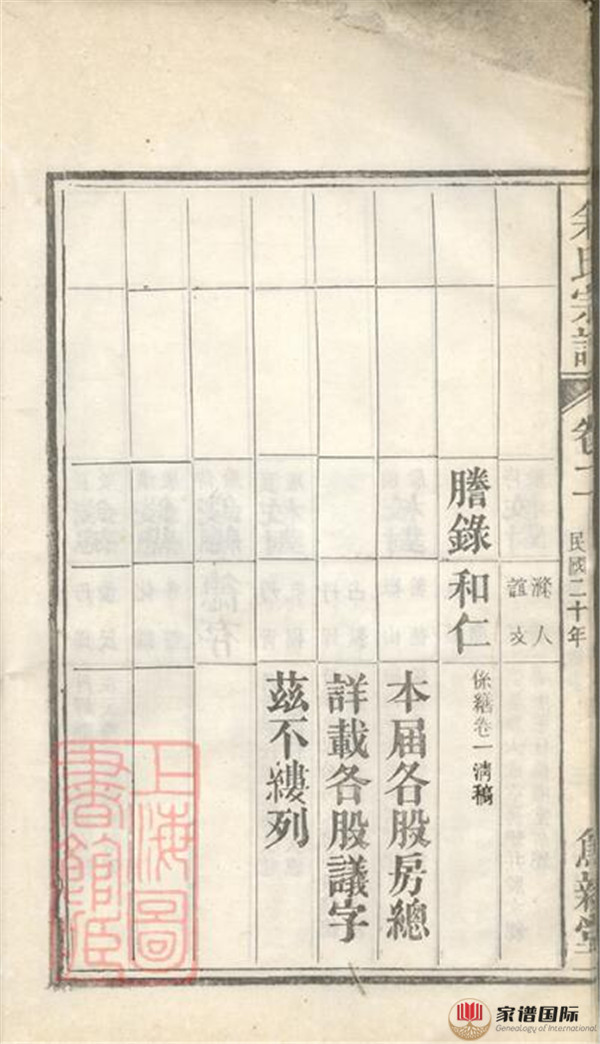 氏宗譜
民國二十年
人
誼
謄錄 和仁 係繕卷一清稿
本屆各股房總
詳載各股議字
茲不縷列
上海圖
書館藏
家谱国际
Genealogy of International